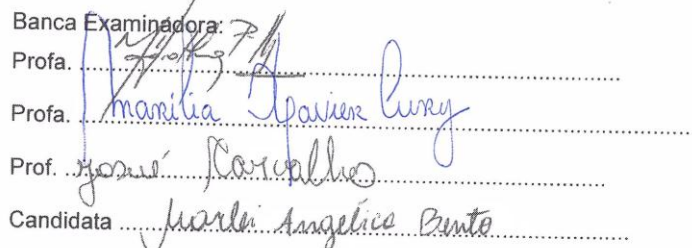 Banca Examinadora:
Profa. ........................................
Profa. Marília Xavier Cury
Prof. Josué Carvalho
Candidata Marlei Angélica Bento